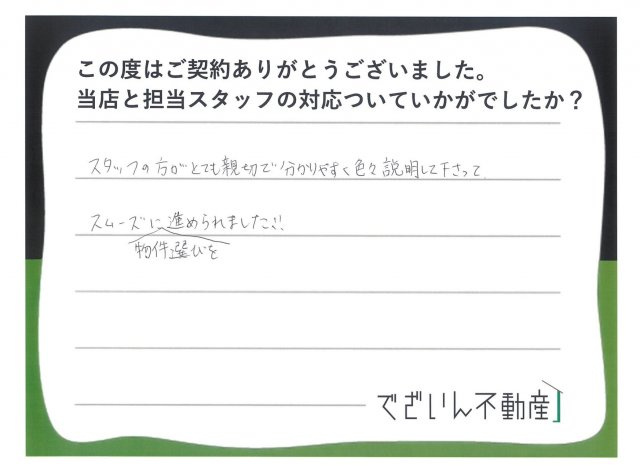 この度はご契約ありがとうございました。
当店と担当スタッフの対応ついていかがでしたか？
スタッフの方がとても親切で分かりやすく色々説明して下さって、
スムーズに進められました!!
物件選びを
でざいん不動産